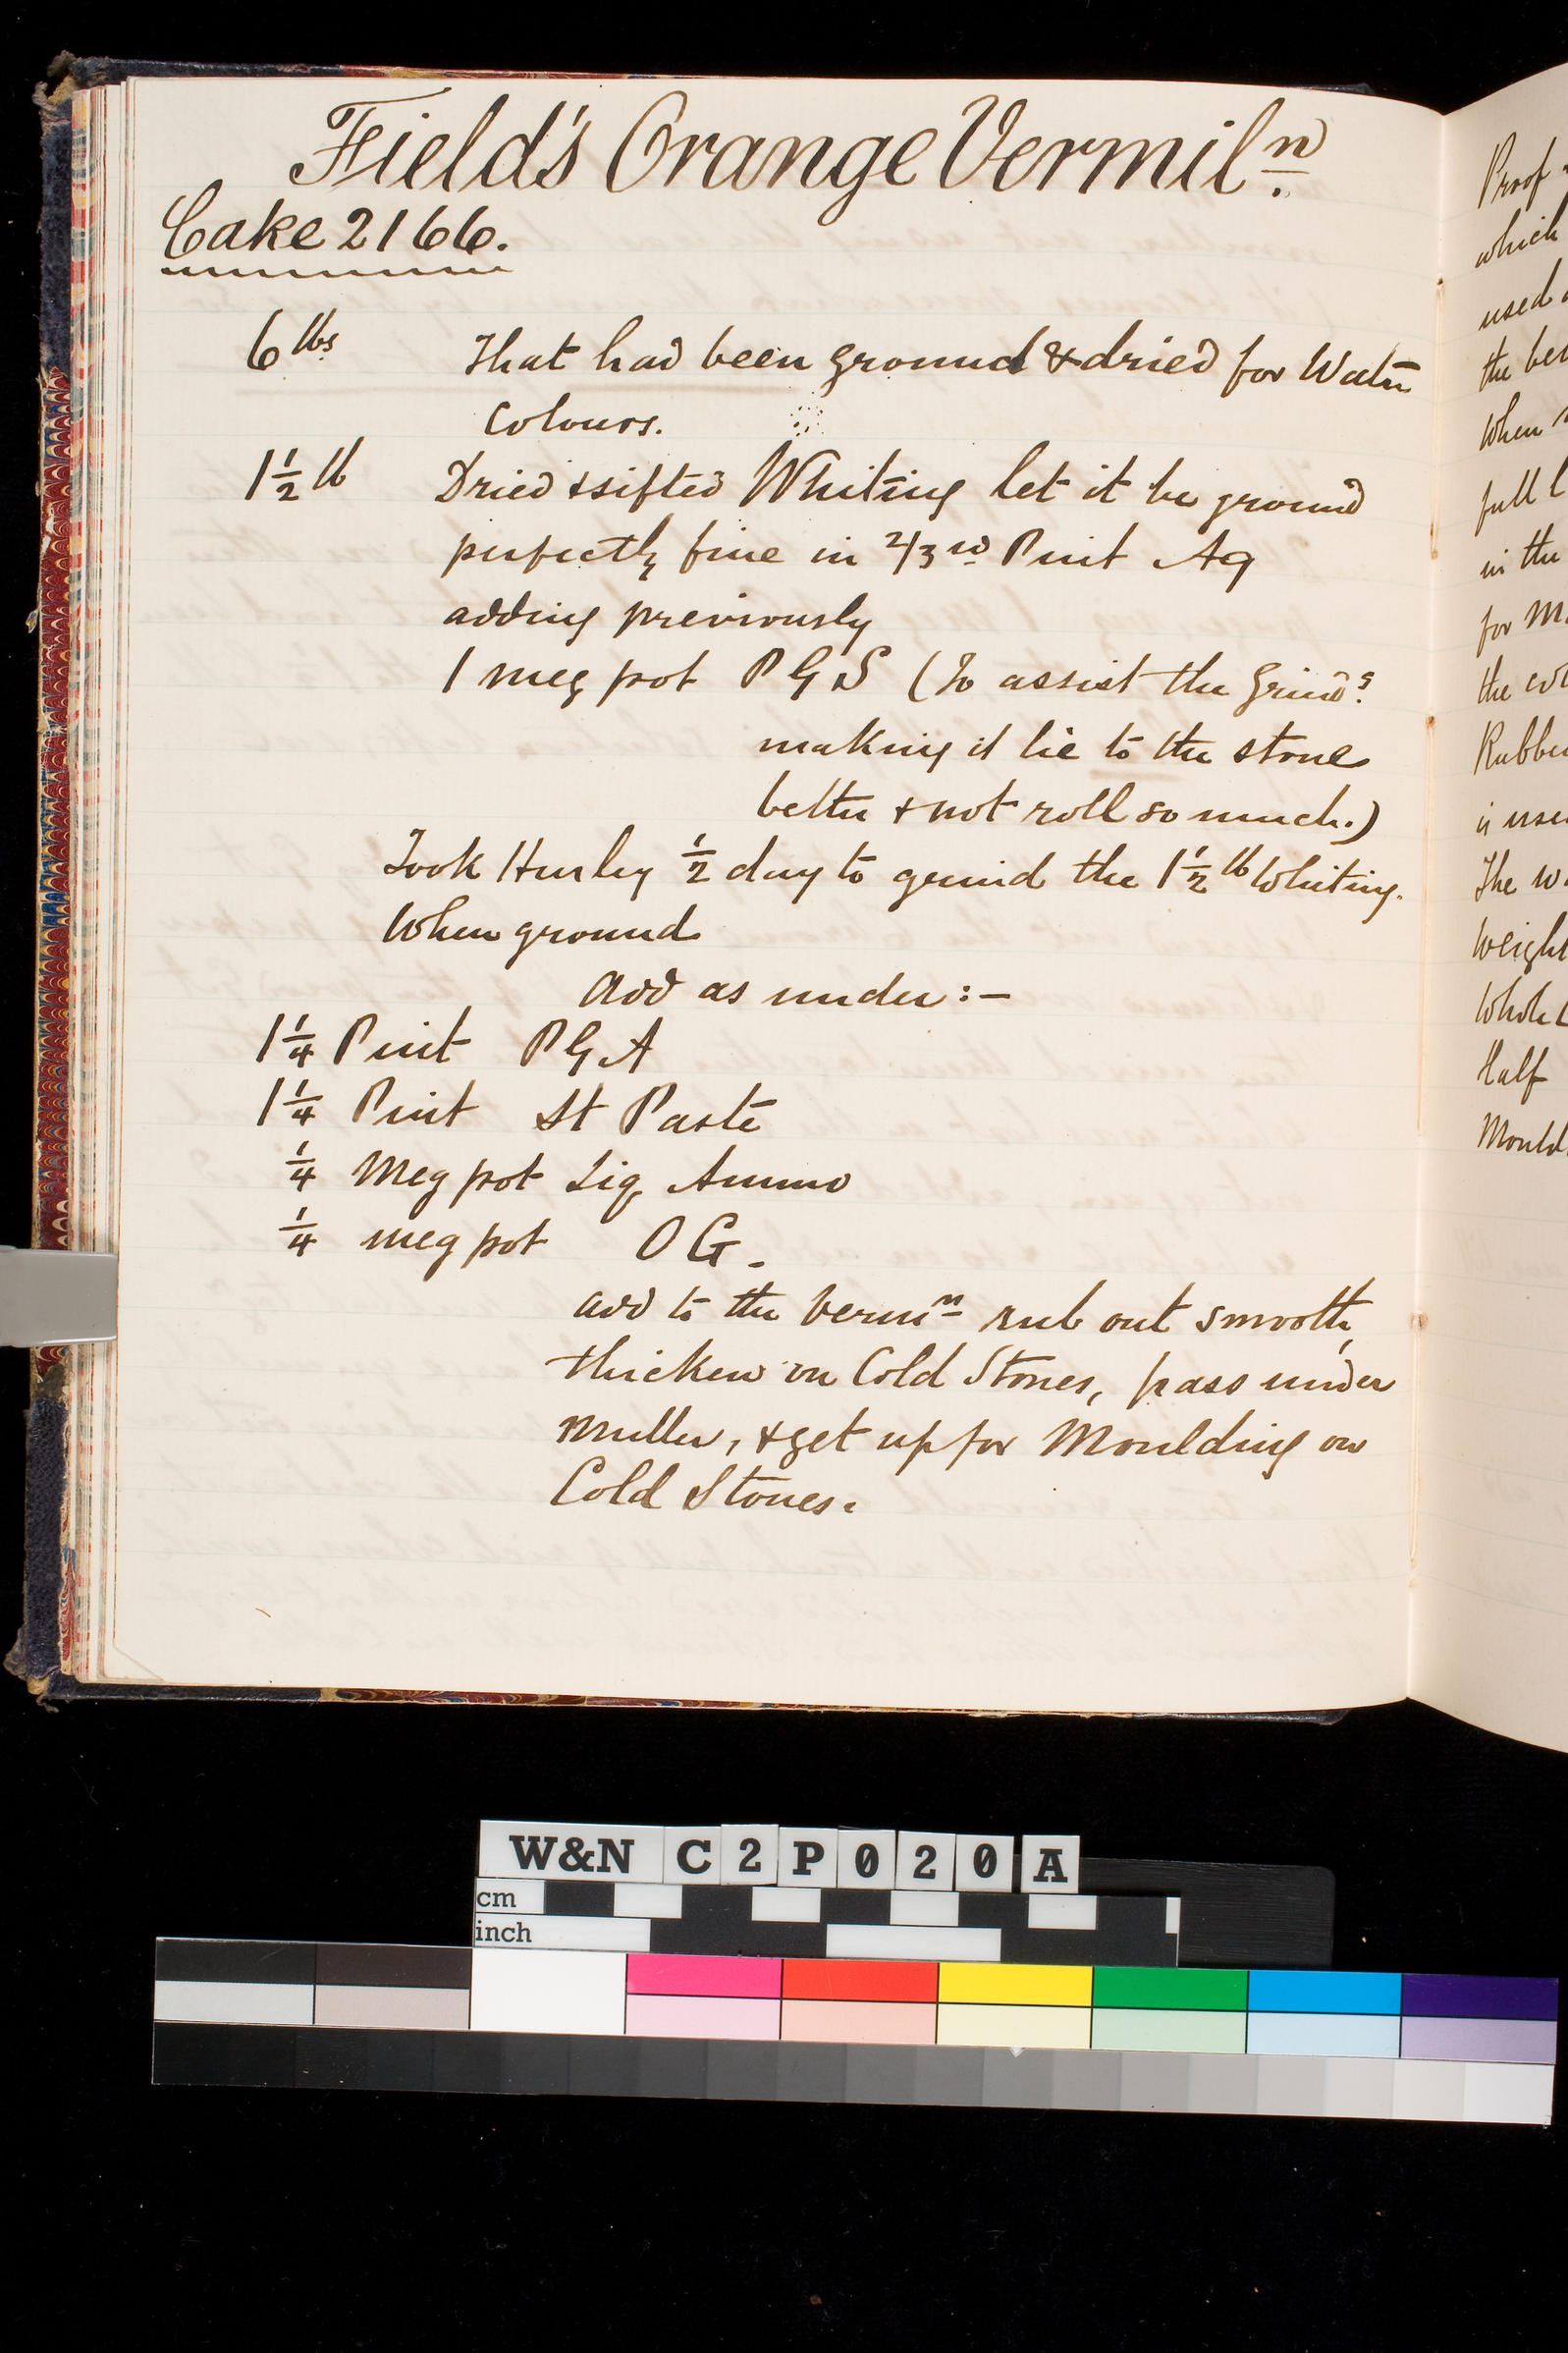 Field's Orange Vermiln
Cake 2166.
6 lbs That had been ground & dried for Water
Colours.
1½ lb Dried & sifted Whiting let it be ground
perfectly fine in 2/3rd Pint Aq
adding previously
1 meg pot P G S (To assist the Grindg
making it lie to the stone
better & not roll so much.)
Took Hurley ½ day to grind the 1½ lb Whiting.
When ground
Add as under :—
1¼ Pint P G A
1¼ Pint St Paste
¼ Meg pot Liq Ammo
¼ meg pot O G -
add to the Vermn rub out smooth,
thicken on Cold Stones, pass under
muller, & get up for Moulding on
Cold Stones.
Proof
which
used
the
When
full
in the
for
the
is
The
weight
Whole
Half
Mould
W&N C2P020A
cm
inch